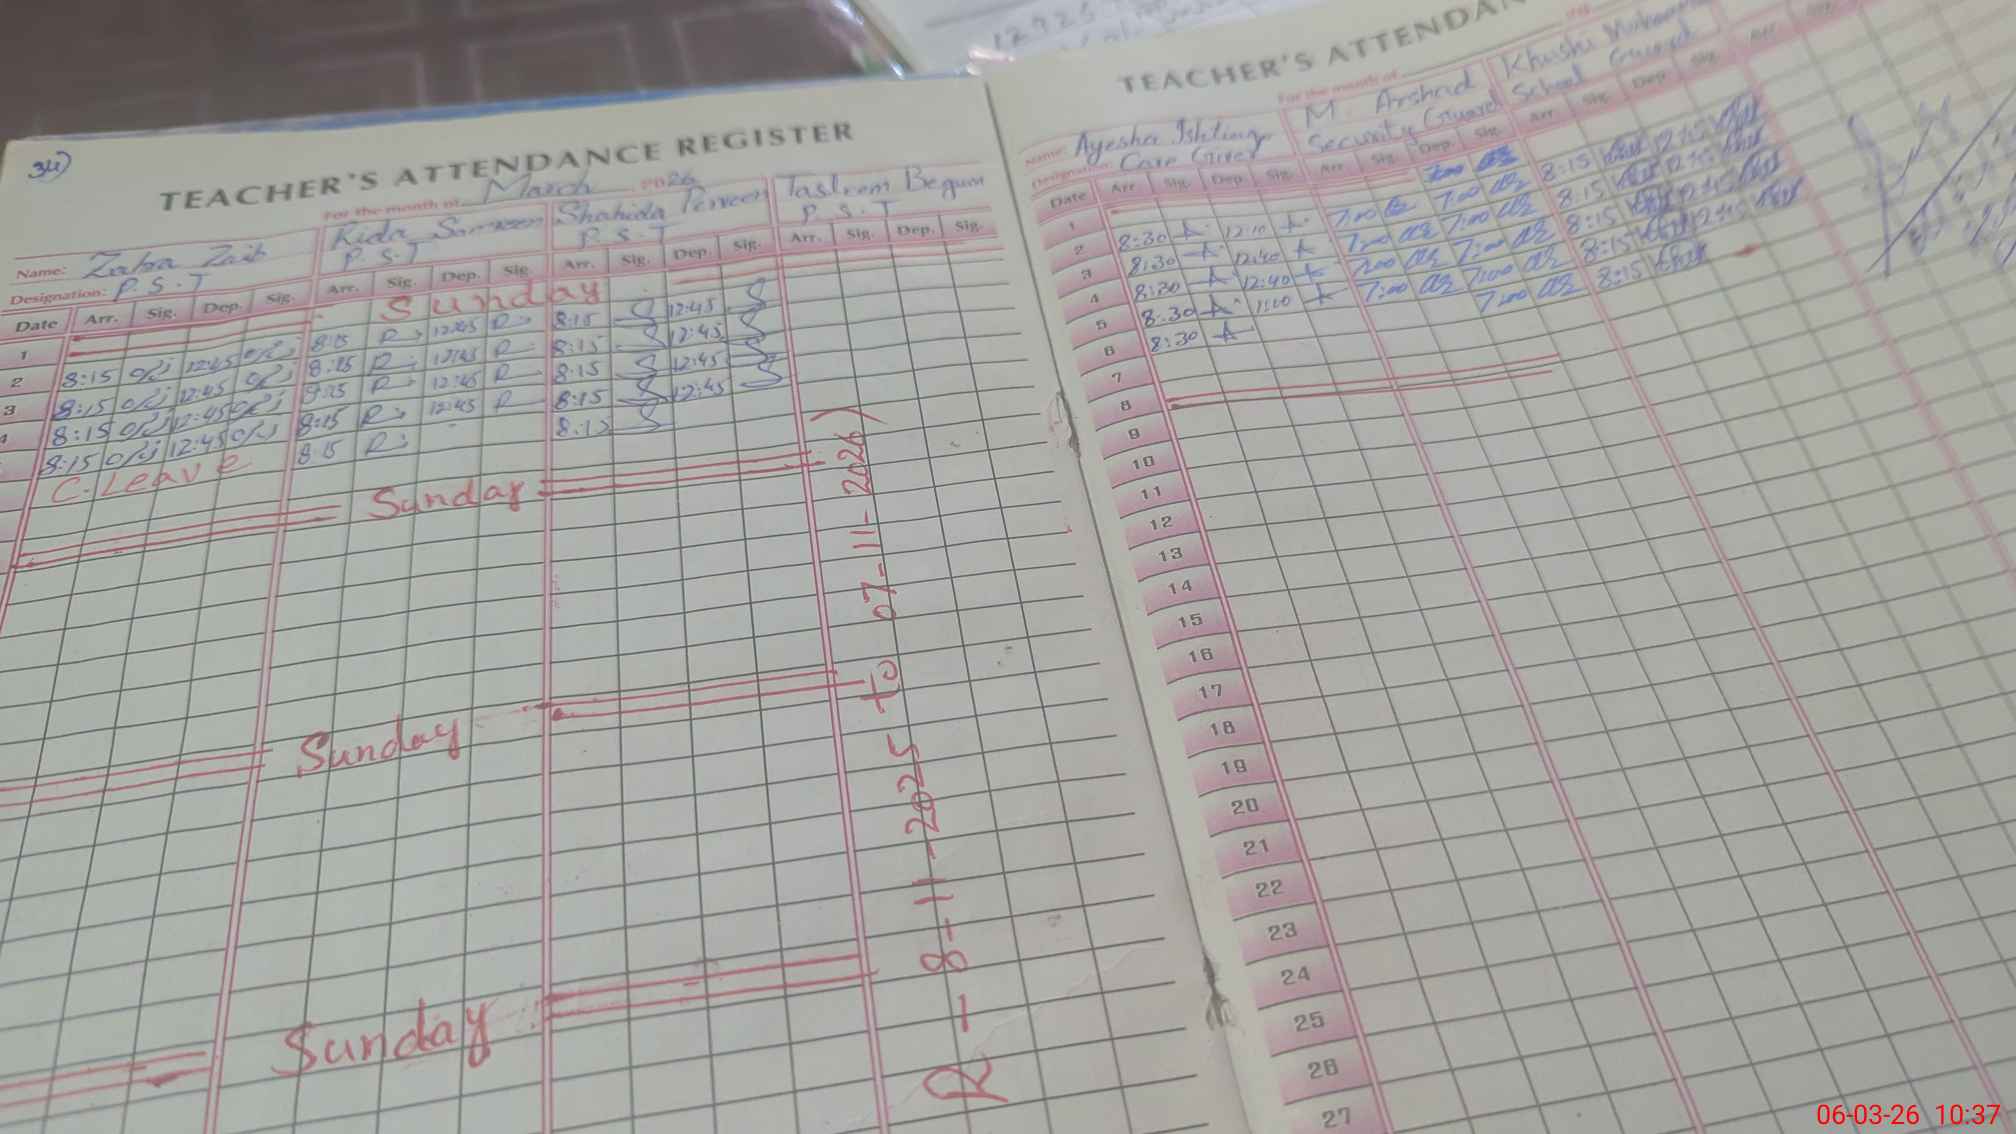 34)
TEACHER'S ATTENDANCE REGISTER
For the month of March 2026
Name: Zahra Zaib Rida Samreen Shahida Perveen Tasleem Begum
Designation: P.S.T P.S.T P.S.T P.S.T
Date Arr. Sig. Dep. Sig. Arr. Sig. Dep. Sig. Arr. Sig. Dep. Sig. Arr. Sig. Dep. Sig.
1 Sunday
2 8:15 12:45 8:15 R 12:45 R 8:15 12:45
3 8:15 12:45 8:15 R 12:45 R 8:15 12:45
4 8:15 12:45 8:15 R 12:45 R 8:15 12:45
8:15 12:45 8:15 R 12:45 R 8:15 12:45
C. Leave 8:15 R 8:15
Sunday
Sunday
Sunday
R - 8-11-2025 to 07-11-2026)
TEACHER'S ATTENDAN
For the month of
Name: Ayesha Ishtiaq M. Arshad Khushi Muhammad
Designation: Care Giver Security Guard School Guard
Date Arr. Sig. Dep. Sig. Arr. Sig. Dep. Sig. Arr. Sig. Dep. Sig. Arr.
1
2 8:30 12:10 7:00 7:00 8:15 12:45
3 8:30 12:40 7:00 7:00 8:15 12:45
4 8:30 12:40 7:00 7:00 8:15 12:45
5 8:30 11:00 7:00 7:00 8:15 12:45
6 8:30 7:00 8:15
7
8
9
10
11
12
13
14
15
16
17
18
19
20
21
22
23
24
25
26
27
06-03-26 10:37